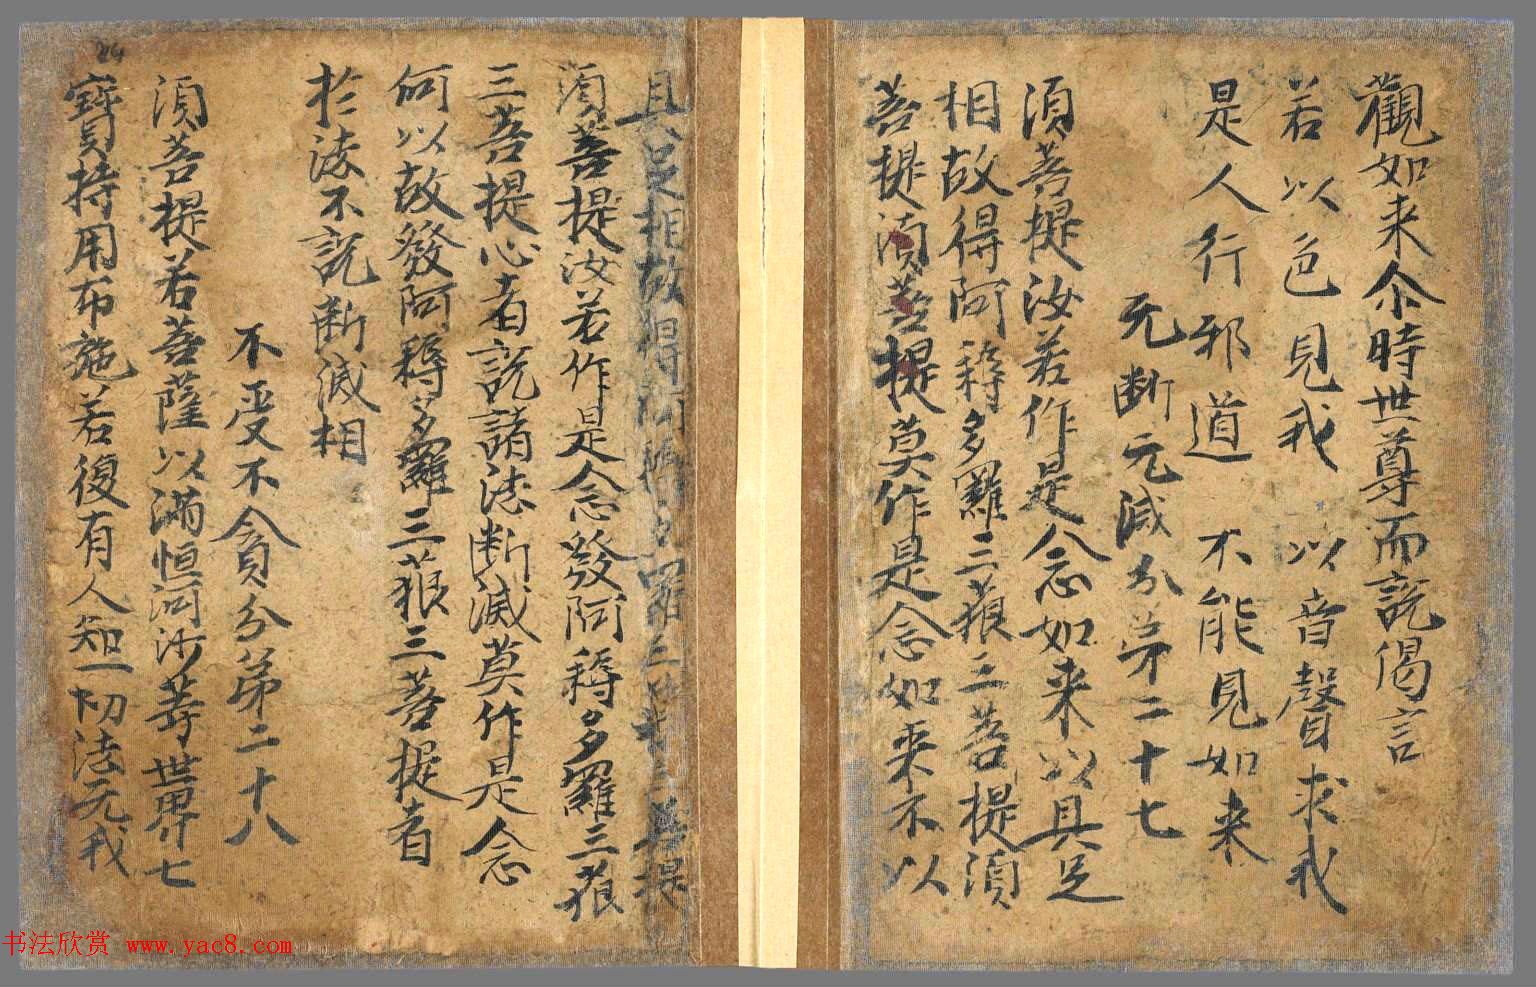 觀如来尒時世尊而説偈言
若以色見我 以音聲求我
是人行邪道 不能見如来
无断无滅分苐二十七
湏菩提汝若作是念如来以具足
相故得阿耨多羅三藐三菩提湏
菩提湏菩提莫作是念如来不以
具足相故得阿耨多羅三藐三菩提
湏菩提汝若作是念發阿耨多羅三藐
三菩提心者説諸法断滅莫作是念
何以故發阿耨多羅三藐三菩提者
於法不説断滅相
不受不貪分苐二十八
湏菩提若菩薩以满恒河沙等世界七
寶持用布施若復有人知一切法无我
24
书法欣赏 www.yac8.com